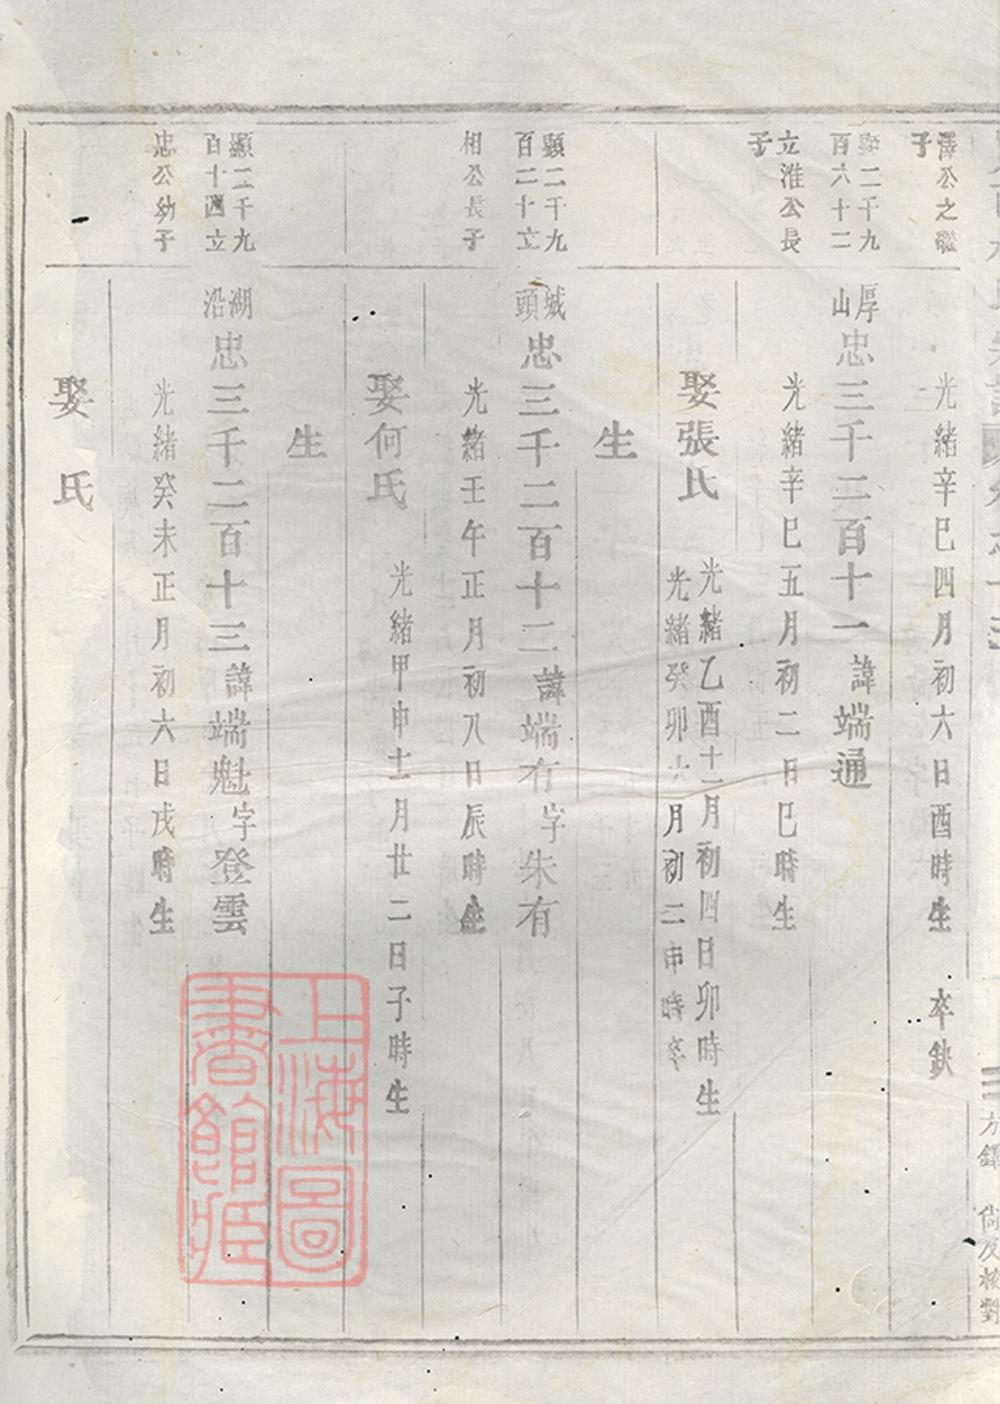 澤公之繼
子
光緒辛巳四月初六日酉時生 卒缺
顯二千九
百六十二
厚
山
忠三千二百十一諱端通
立淮公長
子
光緒辛巳五月初二日巳時生
娶張氏
光緒乙酉十一月初四日卯時生
光緒癸卯六月初二申時卒
生
顯二千九
百二十立
城
頭
忠三千二百十二諱端有字朱有
相公長子
光緒壬午正月初八日辰時生
娶何氏
光緒甲申十一月廿二日子時生
生
顯二千九
百十四立
湖
沿
忠三千二百十三諱端魁字登雲
忠公幼子
光緒癸未正月初六日戌時生
娶 氏
上海圖
書館藏